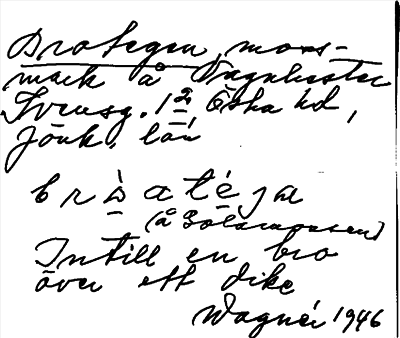 Brotegen, moss-
mark å Vagnhester
Svensg. 12, Östra hd,
Jönk. län
bròatéjen
(å Götamossen)
Intill en bro
över ett dike
Wagnér 1946